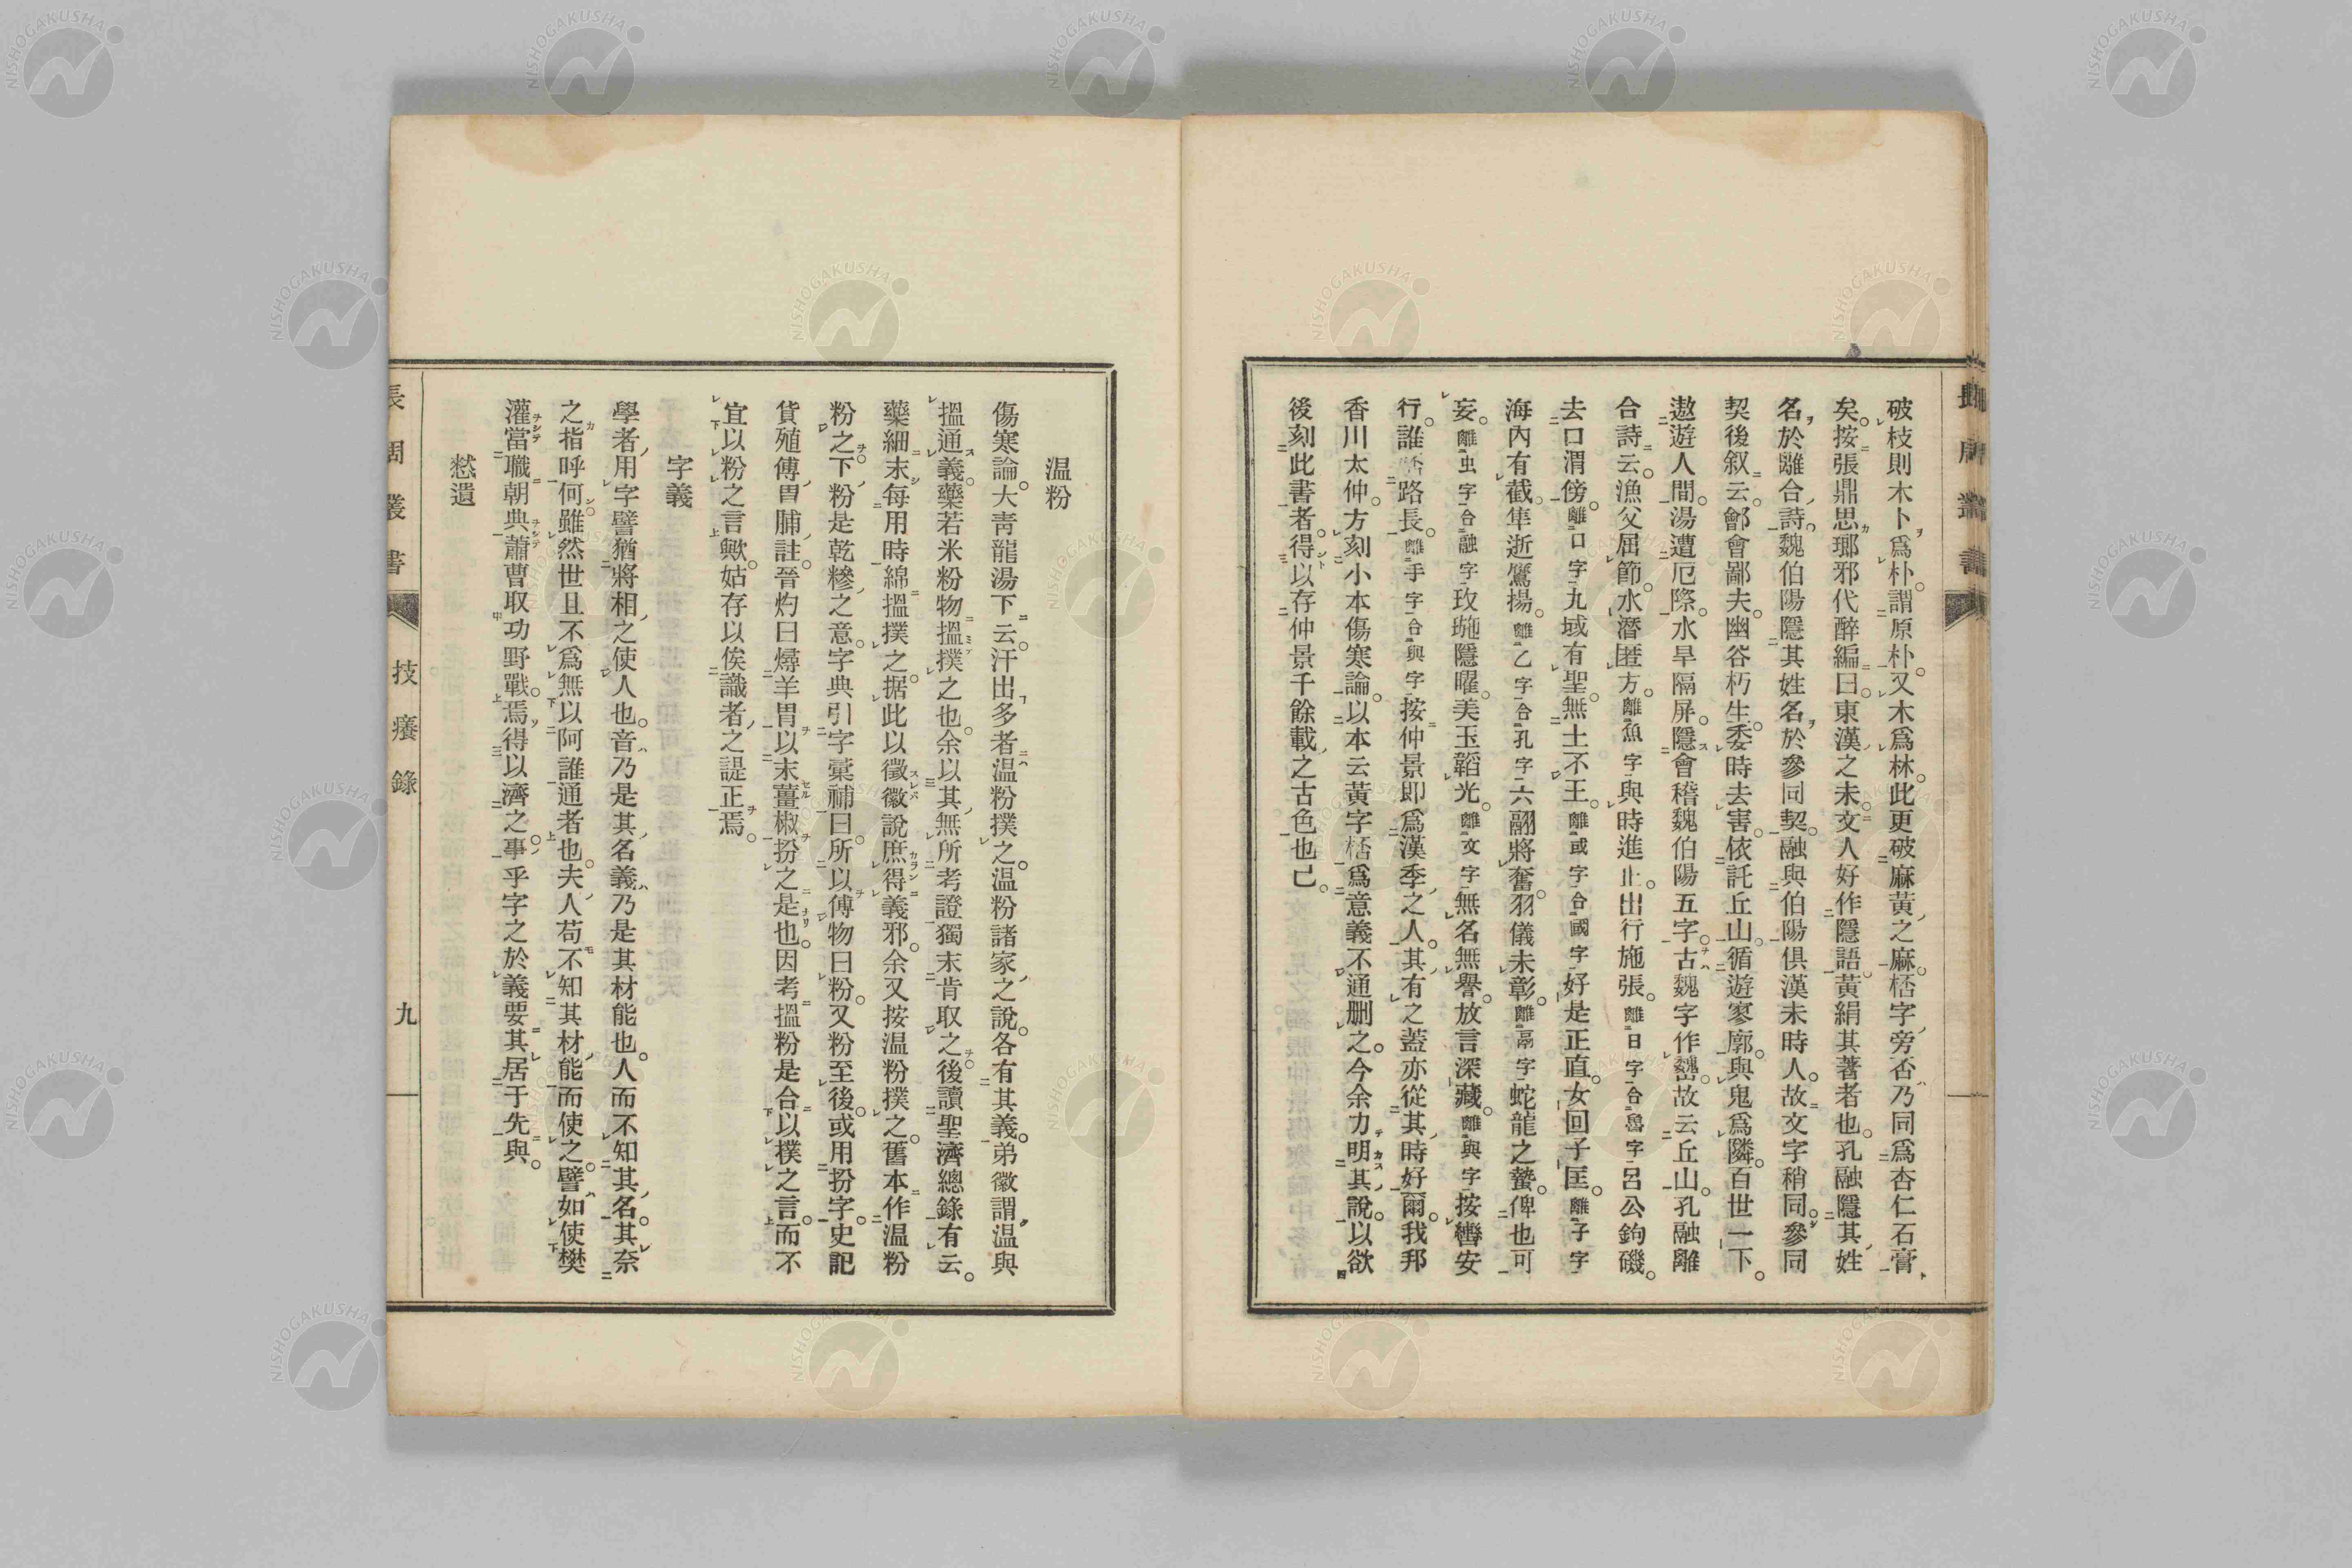 破枝則木卜爲朴。謂原朴。又木爲林。此更破麻黃之麻。桰字旁否乃同爲杏仁石膏
矣。按張鼎思瑯邪代醉編曰。東漢之末。文人好作隱語。黃絹其著者也。孔融隱其姓
名於離合詩。魏伯陽隱其姓名於參同契。融與伯陽俱漢末時人。故文字稍同。參同
契後叙云。鄶會鄙夫。幽谷朽生。委時去害。依託丘山。循遊寥廓。與鬼爲隣。百世一下。
遨遊人間。湯遭厄際。水旱隔屏。隱會稽魏伯陽五字。古魏字作巍。故云丘山。孔融離
合詩云。漁父屈節。水潛匿方。離魚字與時進止。出行施張。離日字合魯字呂公鉤磯。
去口渭傍。離口字九域有聖。無土不王。離或字合國字好是正直。女回子匡。離子字
海內有截。隼逝鷹揚。離乙字合孔字六翮將奮。羽儀未彰。離鬲字蛇龍之蟄。俾也可
妄。離虫字合融字玫琁隱曜。美玉韜光。離文字無名無譽。放言深藏。離與字按轡安
行。誰路長。離手字合與字按仲景卽爲漢季之人。其有之蓋亦從其時好爾。我邦
香川太仲。方刻小本傷寒論。以本云黃字桰爲意義不通刪之。今余力明其說。以欲
後刻此書者。得以存仲景千餘載之古色也已。
長周叢書
温粉
傷寒論。大靑龍湯下云。汗出多者温粉撲之。温粉諸家之說。各有其義。弟徽謂温與
搵通義。藥若米粉物搵撲之也。余以其無所考證獨未肯取之。後讀聖濟總錄有云。
藥細末每用時綿搵撲之。据此以徵徽說庶得義邪。余又按温粉撲之。舊本作温粉
粉之。下粉是乾糝之意。字典引字彙補曰。所以傅物曰粉。又粉至後。或用扮字。史記
貨殖傳胃脯註。晉灼曰燖羊胃以末薑椒扮之是也。因考搵粉是合以撲之言。而不
宜以粉之言歟。姑存以俟識者之諟正焉。
字義
學者用字譬猶將相之使人也。音乃是其名義乃是其材能也。人而不知其名。其奈
之指呼何。雖然世且不爲無以阿誰通者也。夫人苟不知其材能而使之。譬如使樊
灌當職朝典蕭曹取功野戰。焉得以濟之事乎。字之於義要其居于先與。
憖遺
長周叢書
技癢錄
九